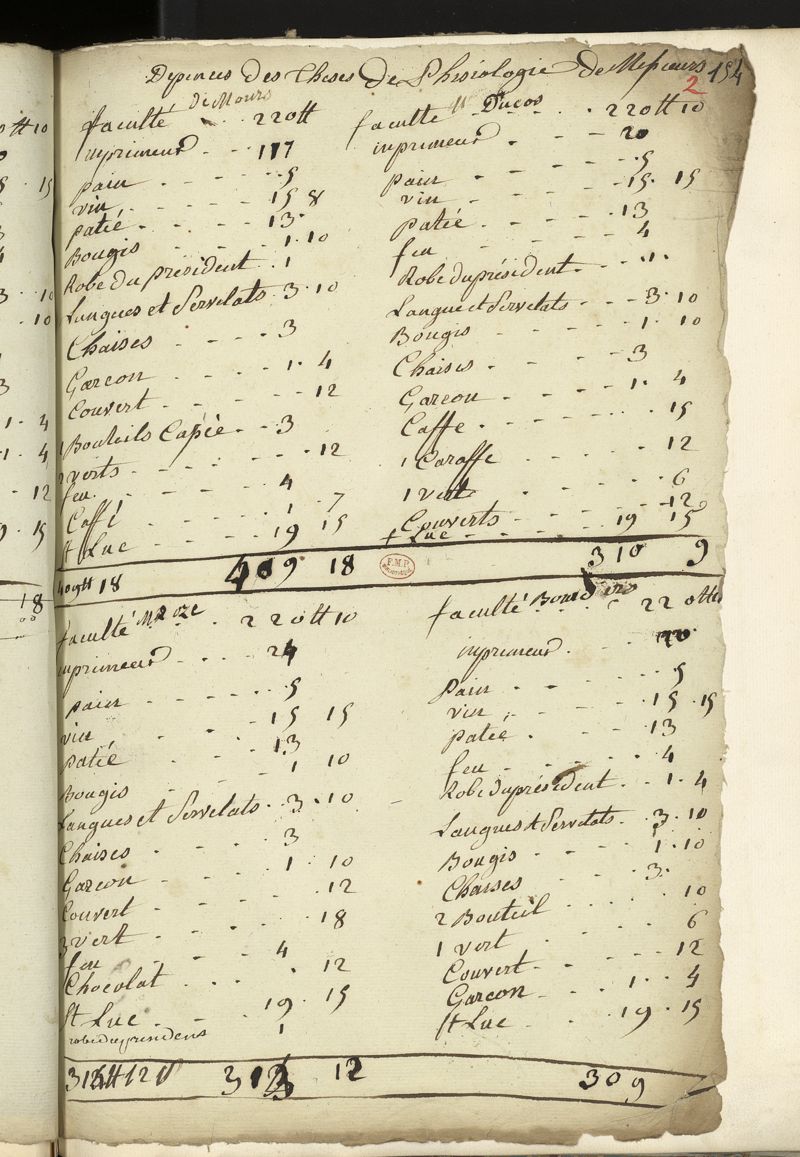 Depences des Theses de Phisiologie de Messieurs 154
2
De Mours
faculté . . 220tt
imprimeur . . 117
pain . . . 5
vin . . . 15 8
patié . . . 13
Bougis . . . 1 . 10
Robe du president . 1
Langues et Servelats . 3 . 10
Chaises . . . 3
Garcon . . . 1 . 4
Couvert . . . 12
1 Bouteils Capié . . 3
2 verts . . . 12
feu . . . 4
Caffé . . . 1 . 7
St Luc . . . 19 15
40gtt 18 409 18
Mr Ducos
faculté . . . 220tt 10
imprimeur . . . 20
pain . . . 5
vin . . . 15 . 15
patié . . . 13
feu . . . 4
Robe du président . . 1 .
Langue et Servelats . . 3 . 10
Bougis . . . 1 . 10
Chaises . . . 3
Garcon . . . 1 . 4
Caffe . . . 15
1 Caraffe . . . 12
1 vert . . . 6
Couverts . . . 12
St Luc . . . 19 15
310 9
F.M.P.
Mr oze
faculté . . 220tt 10
imprimeur . . . 24
pain . . . 5
vin . . . 15 15
patié . . . 13
Bougis . . . 1 10
Langues et Servelats . . 3 . 10
Chaises . . . 3
Garcon . . . 1 . 10
Couvert . . . 12
3 vert . . . 18
feu . . . 4
Chocolat . . . 12
St Luc . . . 19 . 15
robe du president 1
313tt 12s 313 12
faculté . . . 220tt
imprimeur . . . 20
Pain . . . 5
vin . . . 15 . 15
patié . . . 13
feu . . . 4
Robe du président . . 1 . 4
Langues et Servelats . . 3 . 10
Bougis . . . 1 . 10
Chaises . . . 3 .
2 Bouteil . . . 10
1 vert . . . 6
Couvert . . . 12
Garcon . . . 1 . 4
St Luc . . . 19 . 15
309